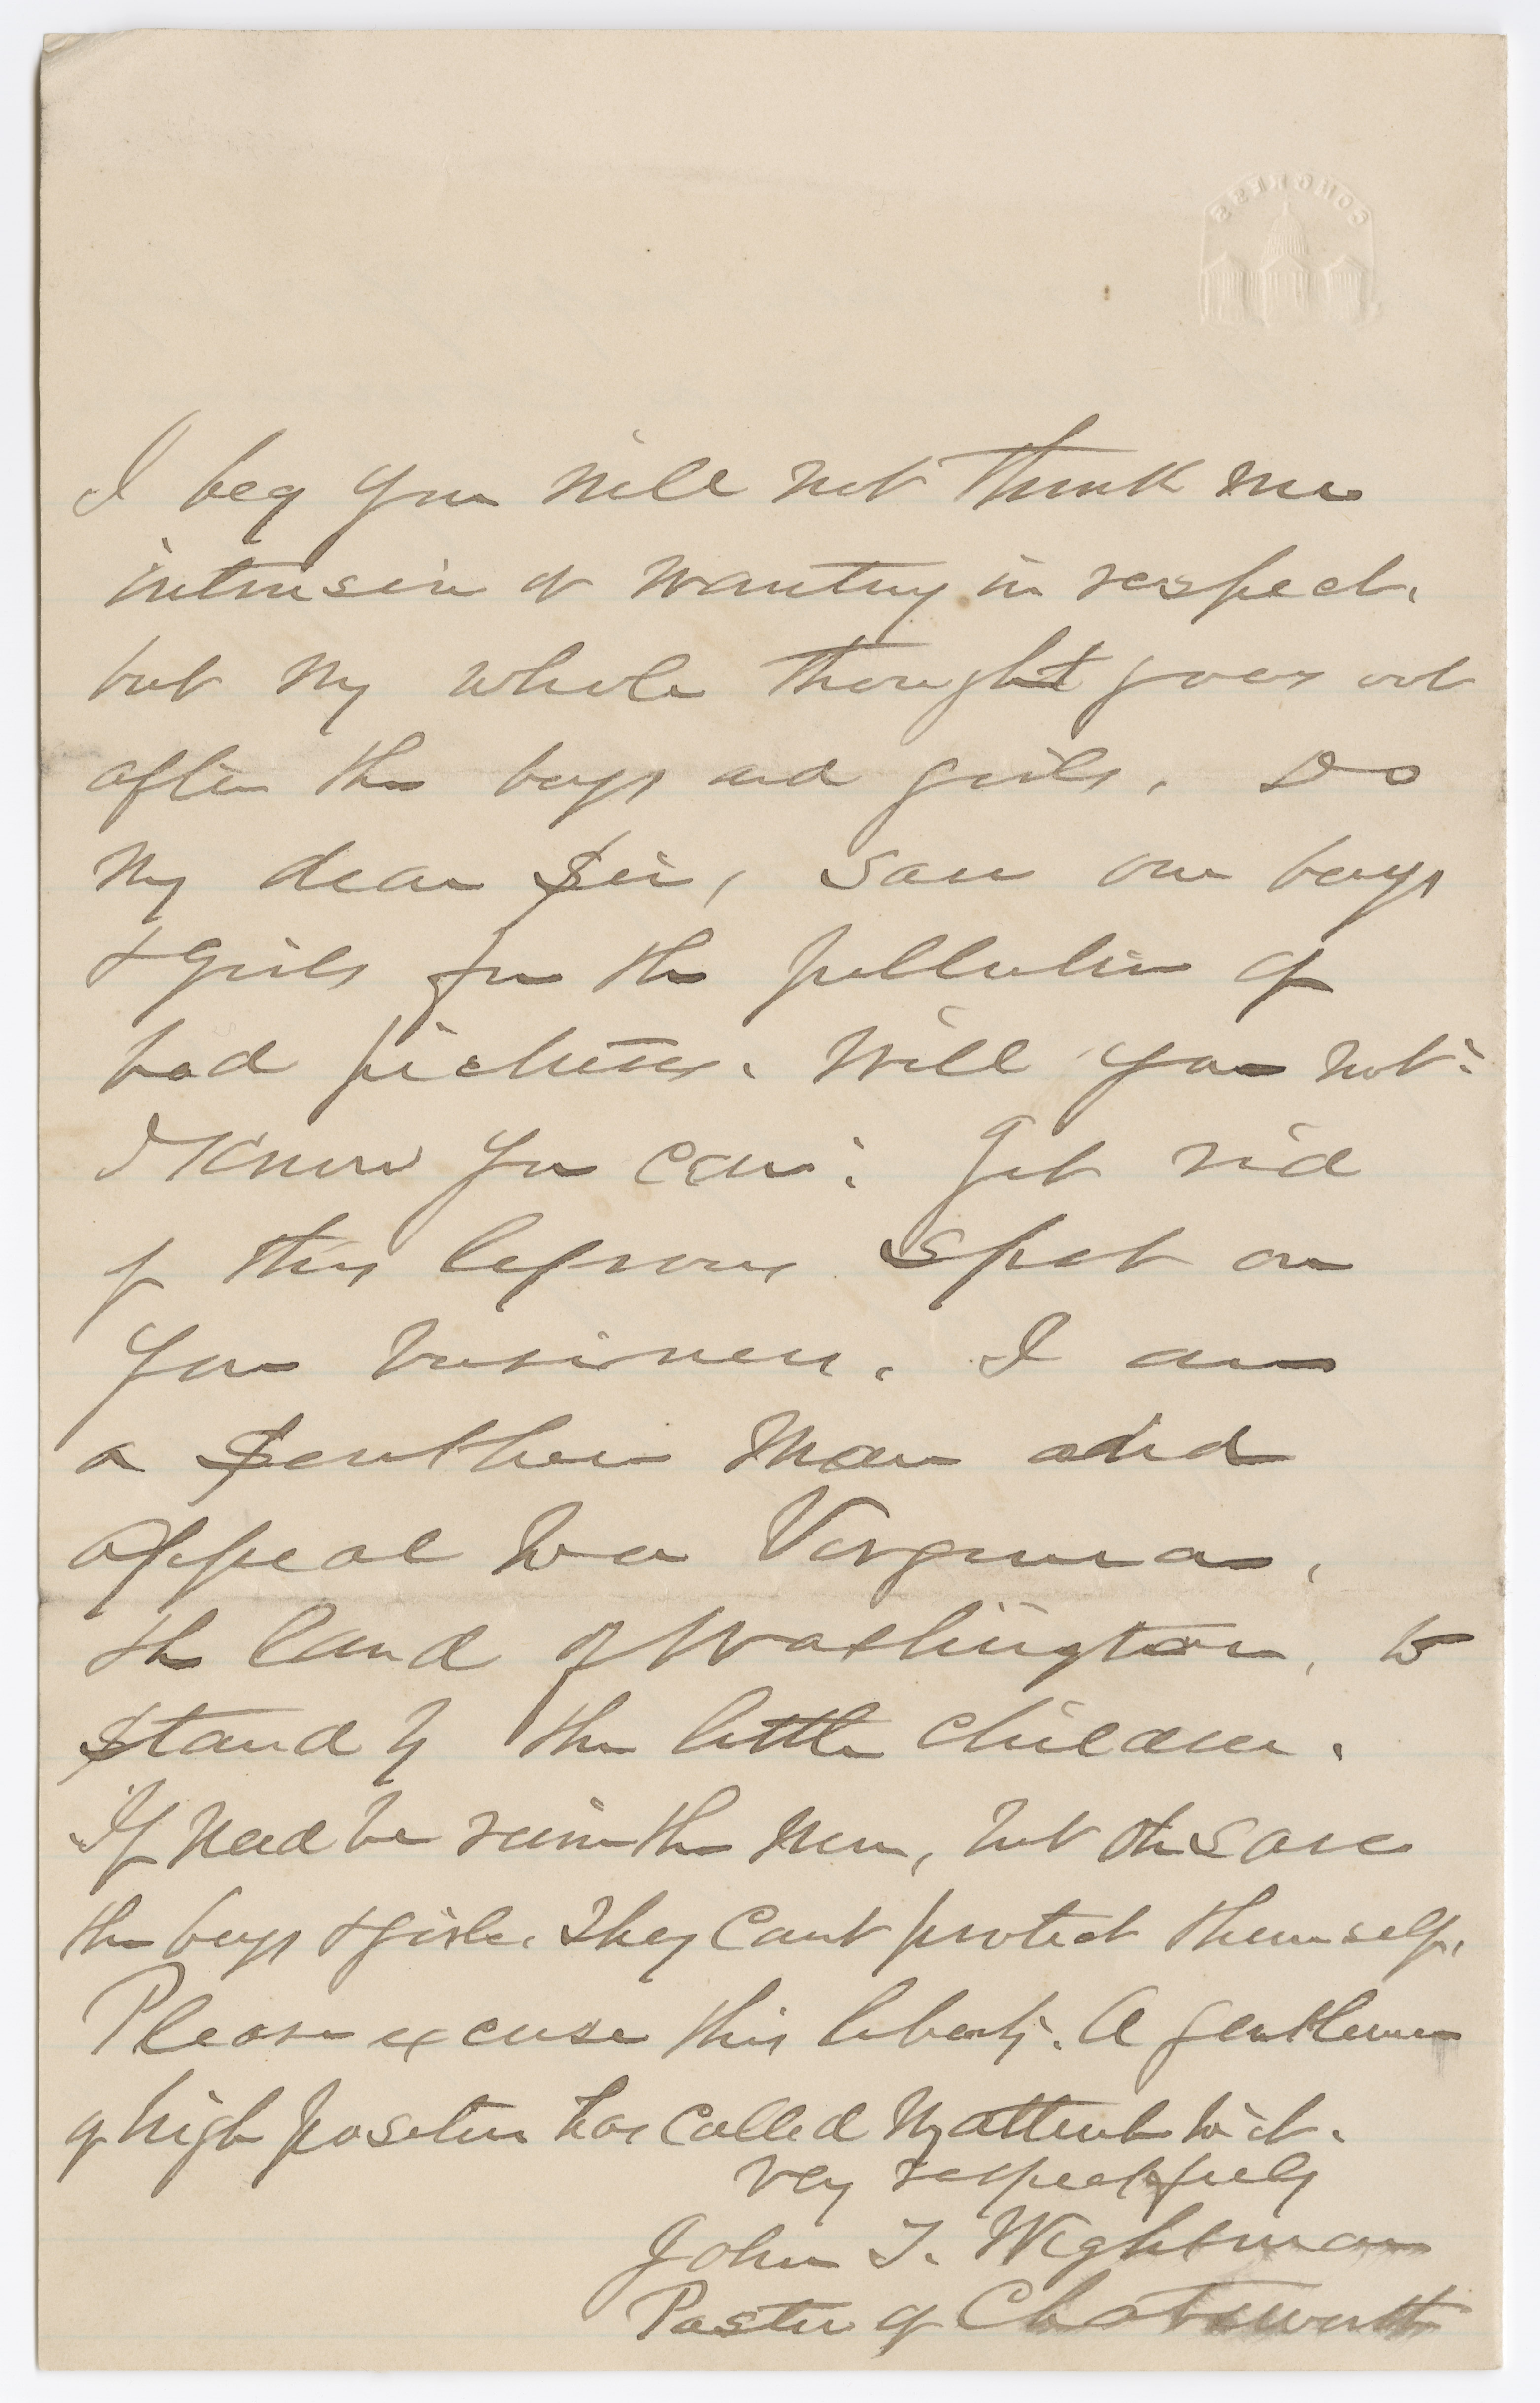 CONGRESS
I beg you will not think me
intrusive or wanting in respect,
but my whole thought goes out
after the boys and girls. Do
my dear Sir, save our boys
& girls from the pollution of
bad pictures. Will you not?
I know you can. Get rid
of this leprous spot on
your business. I am
a Southern man and
appeal to a Virginian,
the land of Washington, to
stand by the little children.
If need be ruin the men, but oh save
the boys & girls. They cant protect themselves.
Please excuse this liberty. A gentleman
of high position has called my attention to it.
Very respectfully
John T. Wightman
Pastor of Chatsworth